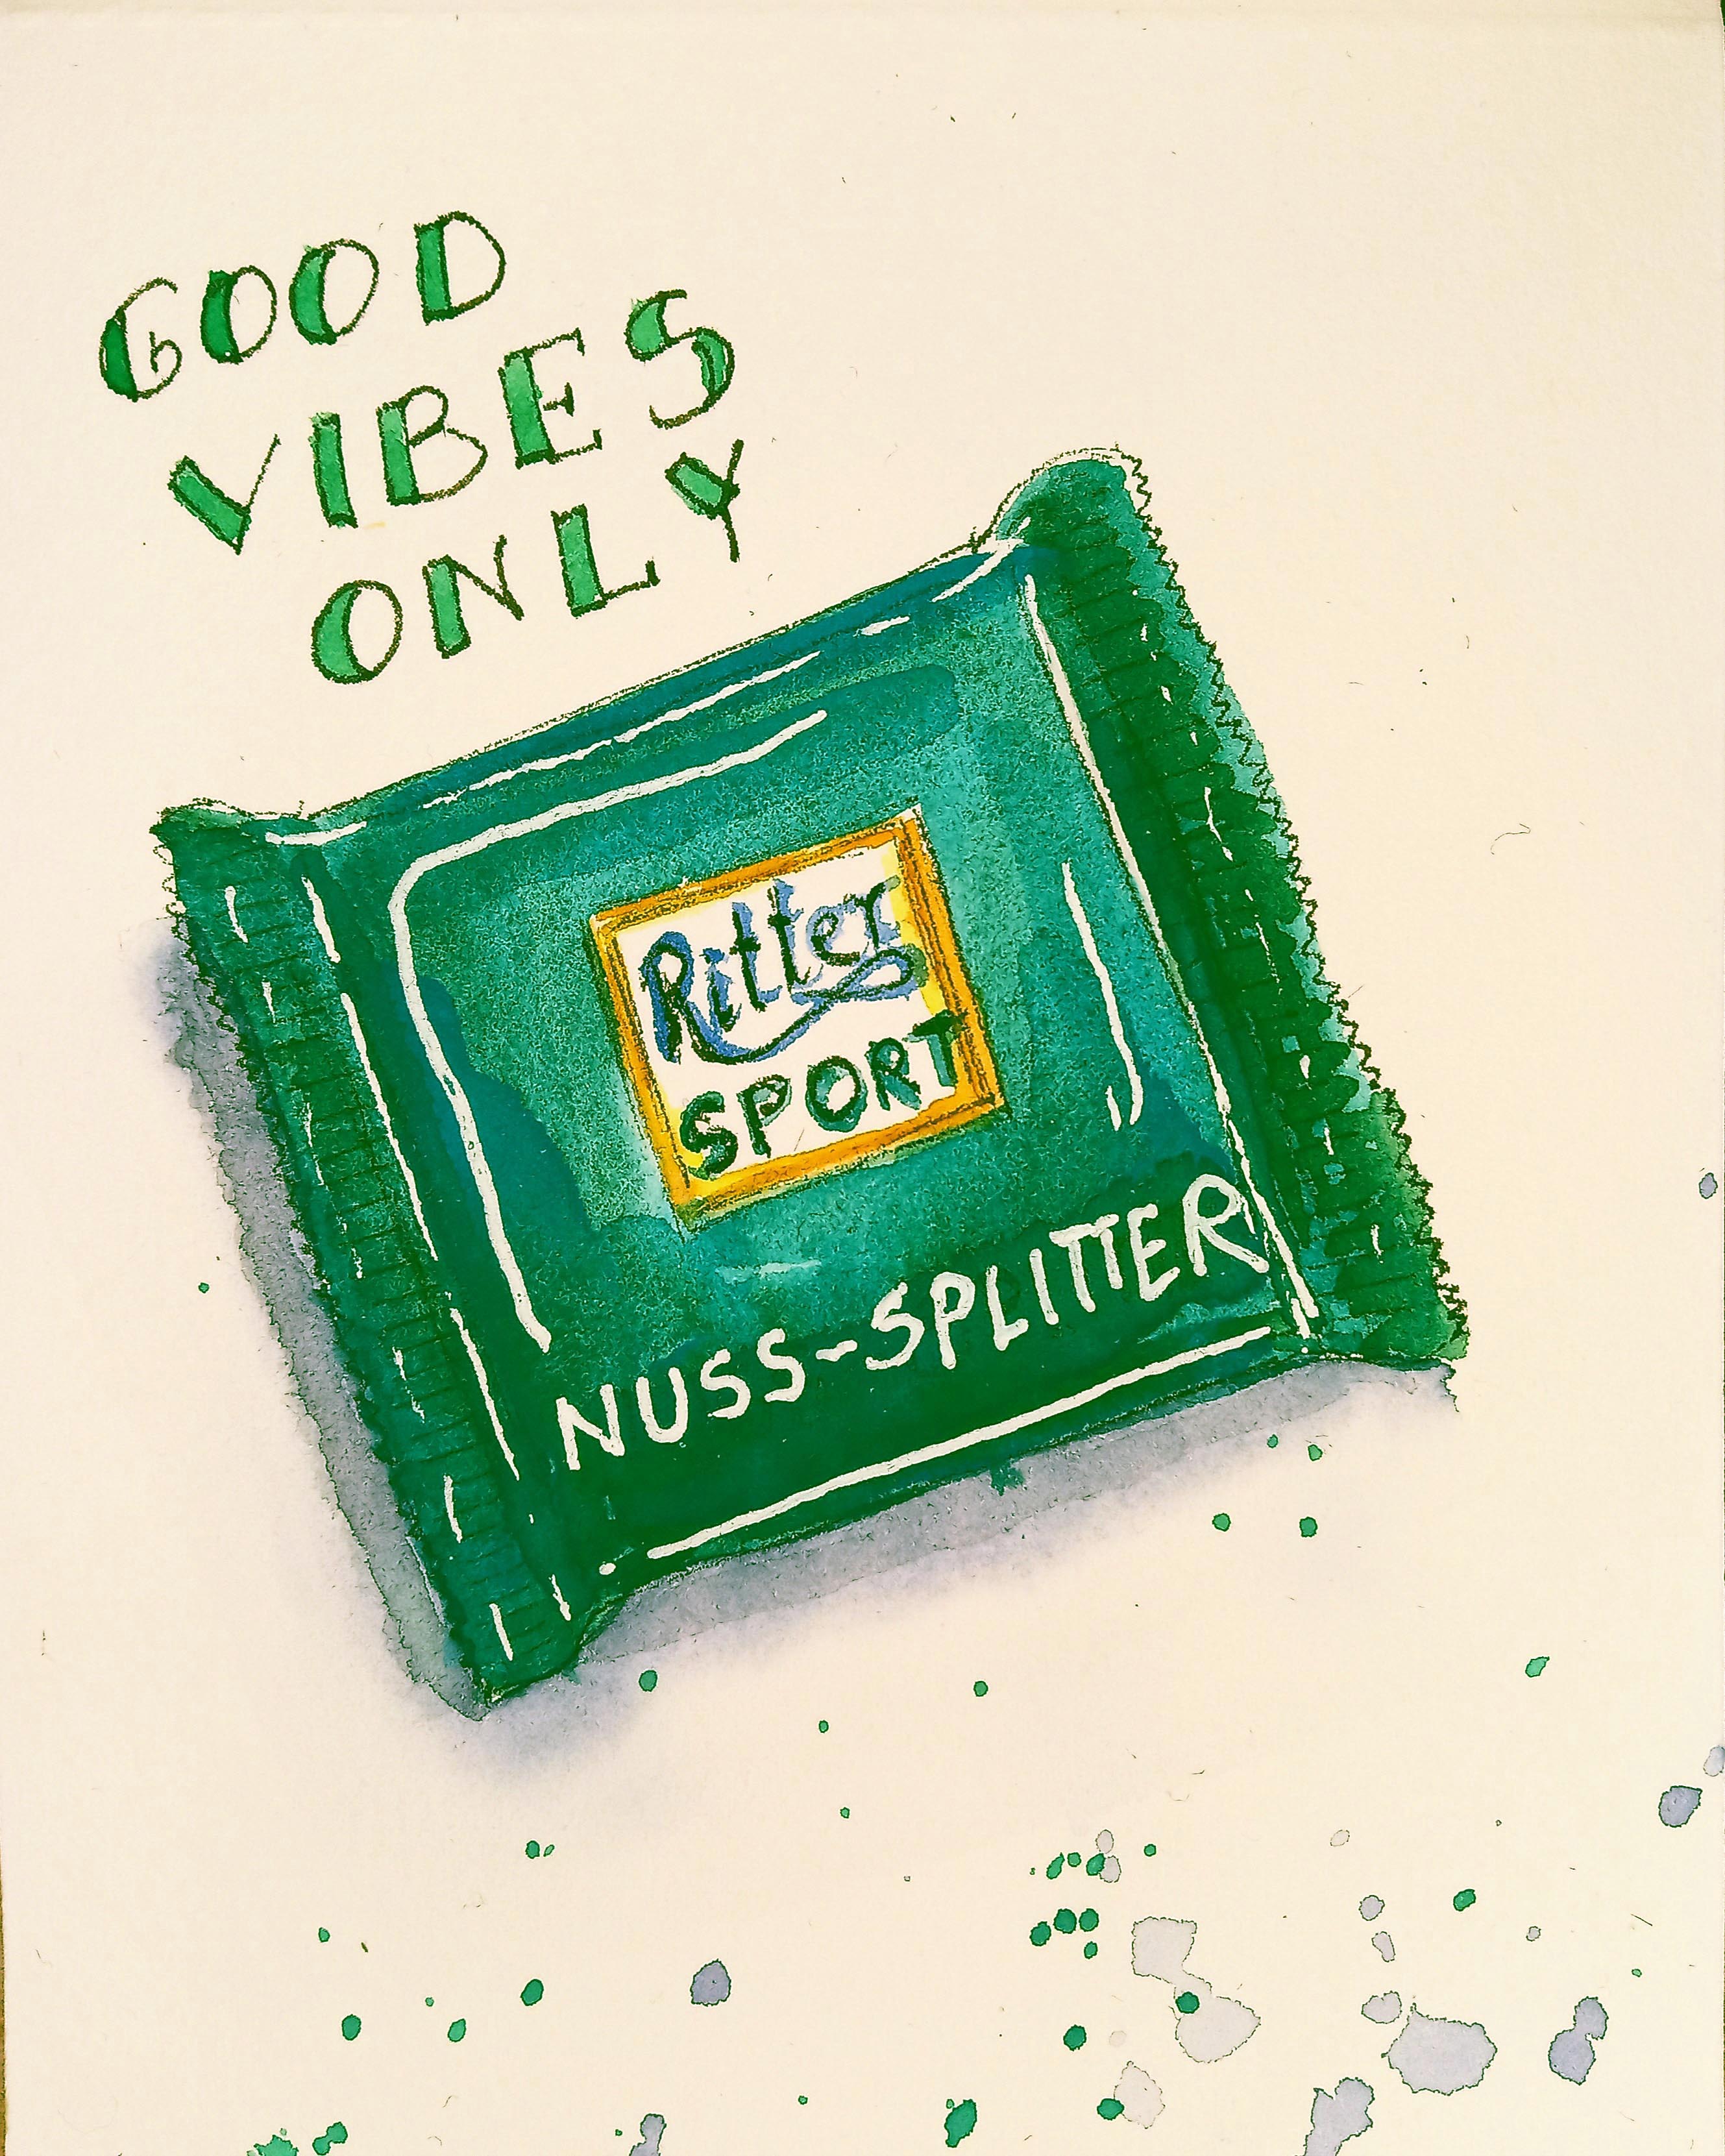 GOOD
VIBES
ONLY
Ritter
SPORT
NUSS-SPLITTER